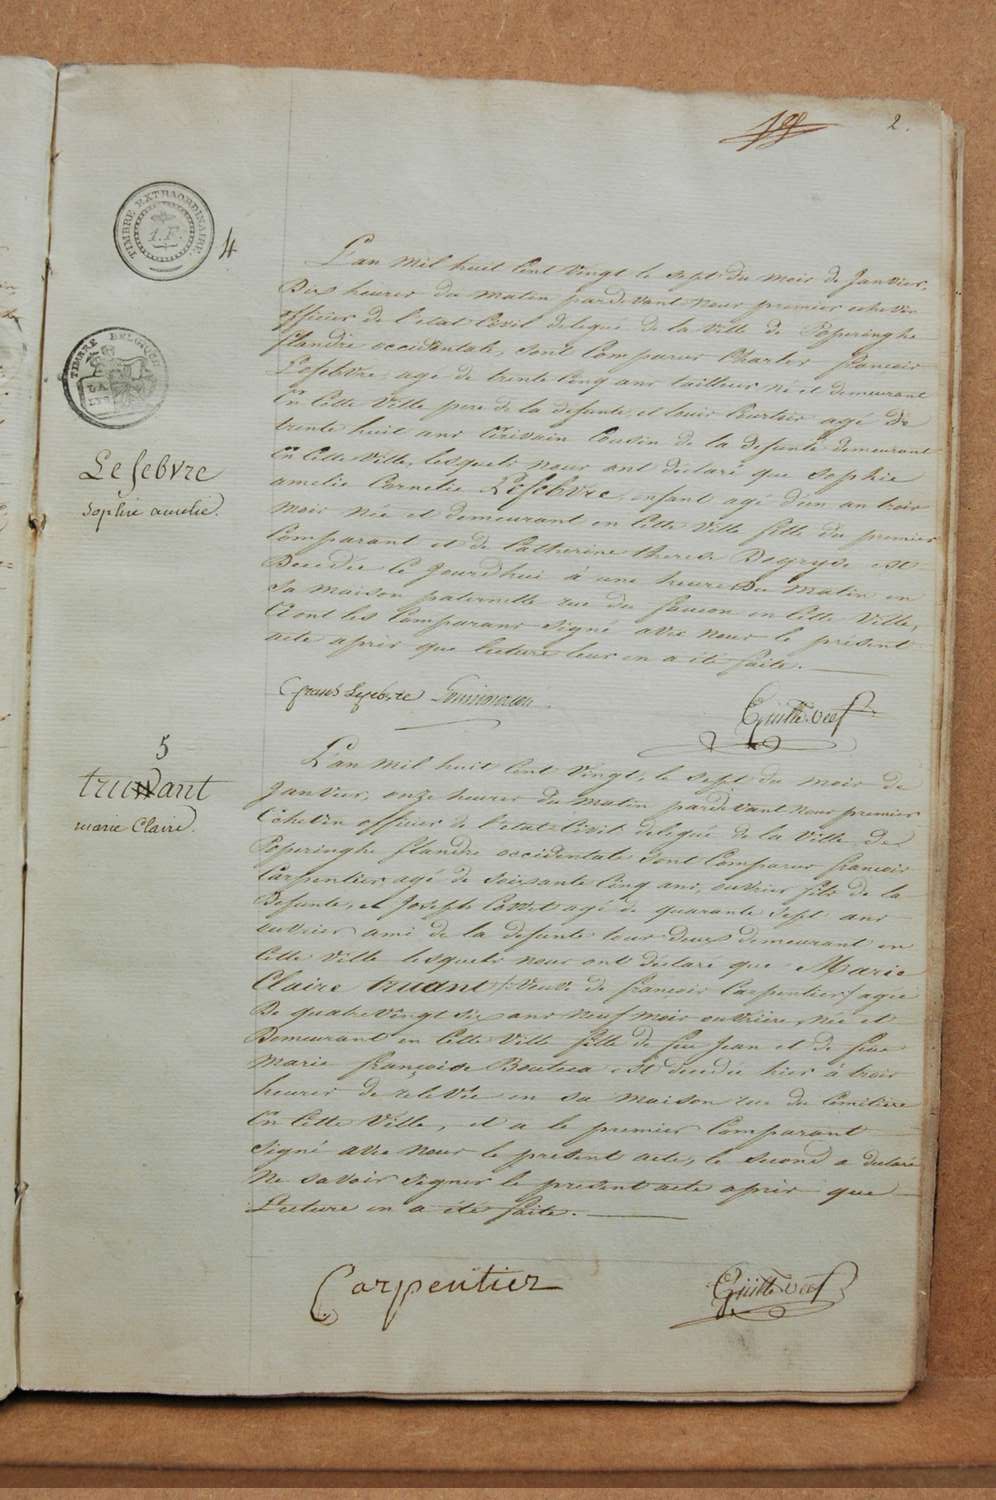 2.
TIMBRE EXTRAORDINAIRE
1.F.
4
L'an mil huit Cent Vingt le Sept du mois de Janvier,
Dix heures du matin pardevant nous premier echevin
officier de l'etat Civil delegué de la Ville de Poperinghe
flandre occidentale, sont Comparus Charles françois
Lefebvre, agé de trente Cinq ans tailleur né et demeurant
En Cette Ville pere de la defunte, et louis agé de
trente huit ans Ecrivain Cousin de la defunte demeurant
En Cette Ville, lesquels nous ont declaré que Sophie
amelie Cornelie Lefebvre, enfant agé d'un an trois
mois née et demeurant en Cette Ville fille du premier
Comparant et de Catherine therese Degryse est
Decedée Ce Jourd'hui à une heure Du matin en
Sa maison paternelle rue du faucon en Cette Ville,
Et ont les Comparans Signé avec nous le présent
acte aprés que lecture leur en a été faite.
TIMBRE BELGIQUE
Lefebvre
Sophie amelie.
C frans Lefebvre
5
truNant
marie Claire.
L'an mil huit Cent Vingt, le Sept du mois de
Janvier, onze heures du matin pardevant nous premier
Echevin officier de l'etat-Civil delegué de la Ville de
Poperinghe flandre occidentale sont Comparus françois
Carpentier, agé de soixante Cinq ans, ouvrier fils de la
Defunte, et Joseph agé de quarante sept ans
ouvrier ami de la defunte tous deux demeurant en
Cette Ville lesquels nous ont déclaré que Marie
Claire truant /: Veuve de françois Carpentier :/ agée
De quatre Vingt Six ans neuf mois ouvrière, née et
Demeurant en Cette Ville fille de feu Jean et de feue
Marie françoise est decedée hier à trois
heures de relevée en sa maison rue du Cemitière
En Cette Ville, et a le premier Comparant
Signé avec nous le présent acte, le second a declaré
ne Savoir Signer le present acte aprés que
Lecture en a été faite.
Carpentier